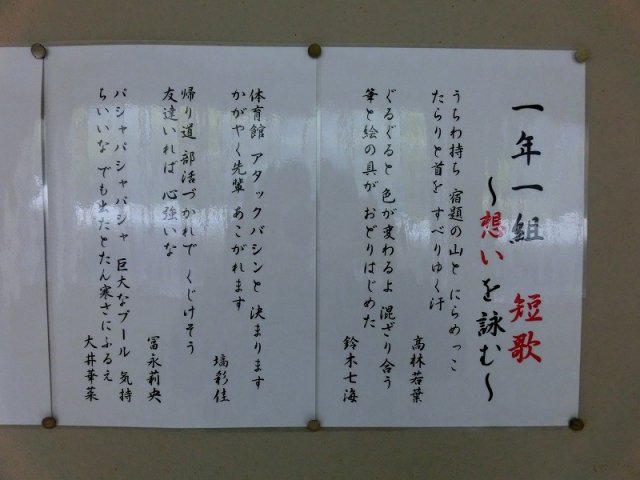 一年一組 短歌
～想いを詠む～
うちわ持ち 宿題の山と にらめっこ
たらりと首を すべりゆく汗
高林若葉
ぐるぐると 色が変わるよ 混ざり合う
筆と絵の具が おどりはじめた
鈴木七海
体育館 アタックバシンと 決まります
かがやく先輩 あこがれます
塙彩佳
帰り道 部活づかれで くじけそう
友達いれば 心強いな
冨永莉央
バシャバシャバシャ 巨大なプール 気持
ちいいな でも出たとたん寒さにふるえ
大井華菜